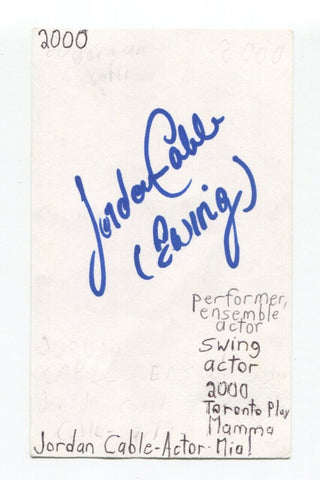 2000
Jordan Cable
(Ewing)
performer,
ensemble
actor
Swing
actor
2000
Toronto Play
Mamma
Jordan Cable-Actor. Mia!